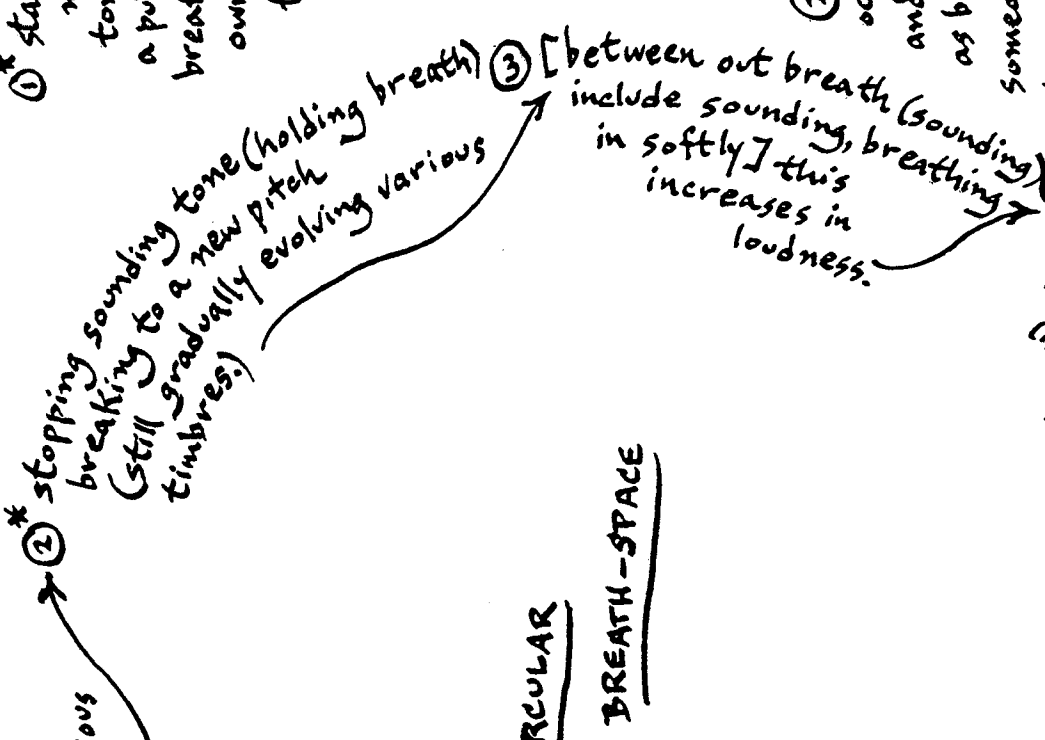 ①* sta
ton
a pu
breat
own
②
oc
and
as b
some
②* stopping sounding tone (holding breath)
breaking to a new pitch
(still gradually evolving various
timbres.)
③ [between out breath (sounding)
include sounding, breathing
in softly] this
increases in
loudness.
ious
RCULAR
BREATH-SPACE